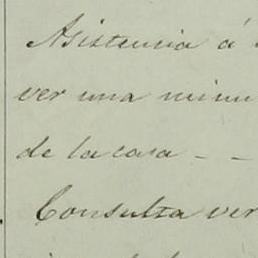 Asistencia á
ver una minu
de la casa - -
Consulta ver